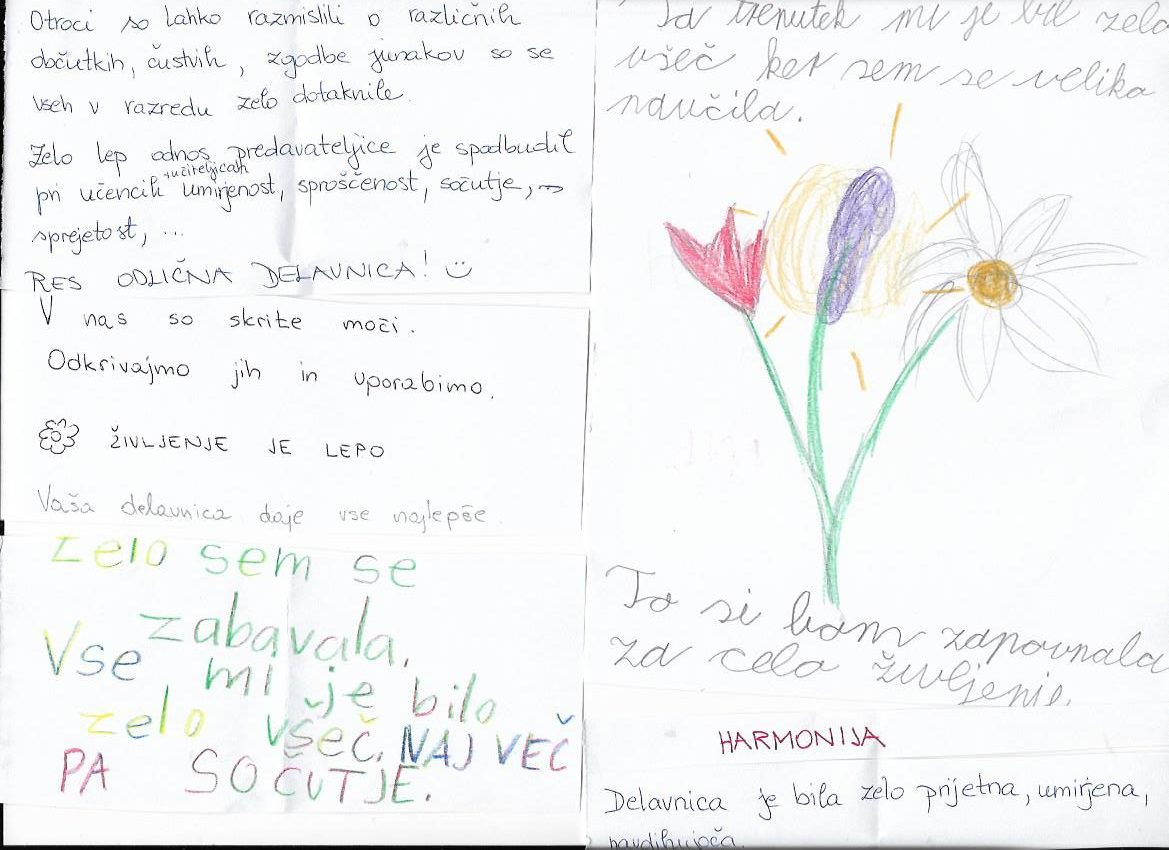 Otroci so lahko razmislili o različnih
občutkih, čustvih, zgodbe junakov so se
vseh v razredu zelo dotaknile.
Zelo lep odnos predavateljice je spodbudil
+učiteljicah
pri učencih umirjenost, sproščenost, sočutje,
sprejetost, ...
RES ODLIČNA DELAVNICA! ☺
V nas so skrite moči.
Odkrivajmo jih in uporabimo.
ŽIVLJENJE JE LEPO
Vaša delavnica daje vse najlepše
Zelo sem se
zabavala.
Vse mi je bilo
zelo všeč. NAJ VEČ
PA SOČUTJE.
Ta trenutek mi je bil zelo
všeč ker sem se velika
naučila.
To si bom zapovnala
za celo življenje.
HARMONIJA
Delavnica je bila zelo prijetna, umirjena,
navdihujoča.